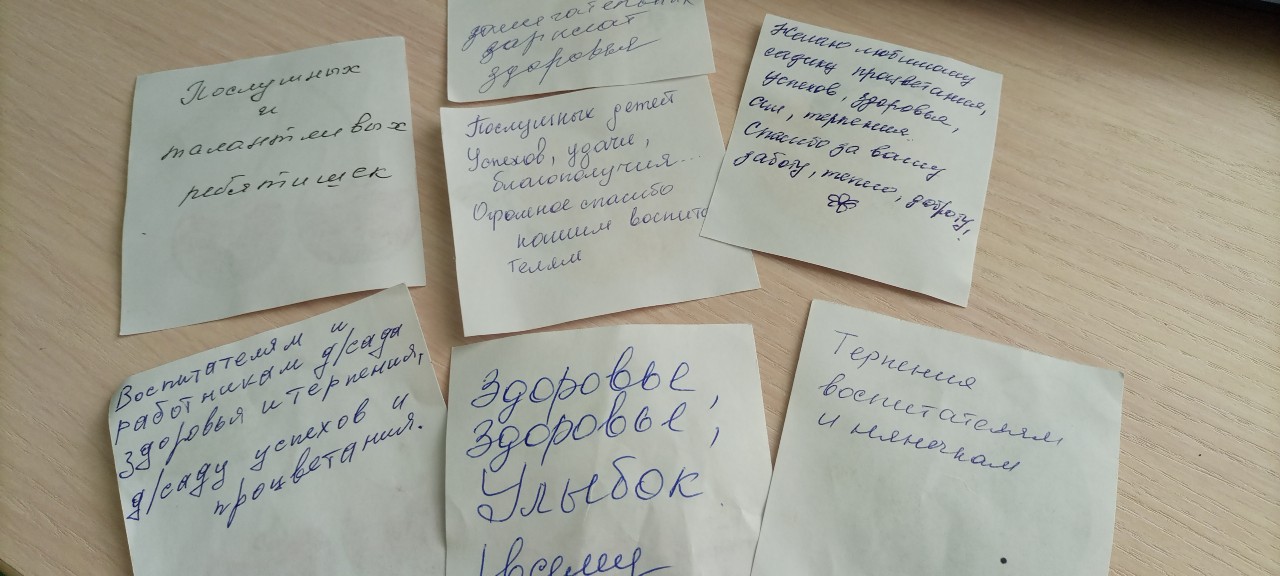 Послушных
и
талантливых
ребятишек
здоровья
Послушных детей
Успехов, удачи,
благополучия...
Огромное спасибо
нашим воспита
телям
Желаю любимому
садику процветания,
успехов, здоровья,
сил, терпения.
Спасибо за вашу
заботу, тепло, доброту,
Воспитателям и
работникам д/сада
здоровья и терпения,
д/саду успехов и
процветания.
Здоровье,
Здоровье,
Улыбок
Терпения
воспитателям
и нянечкам